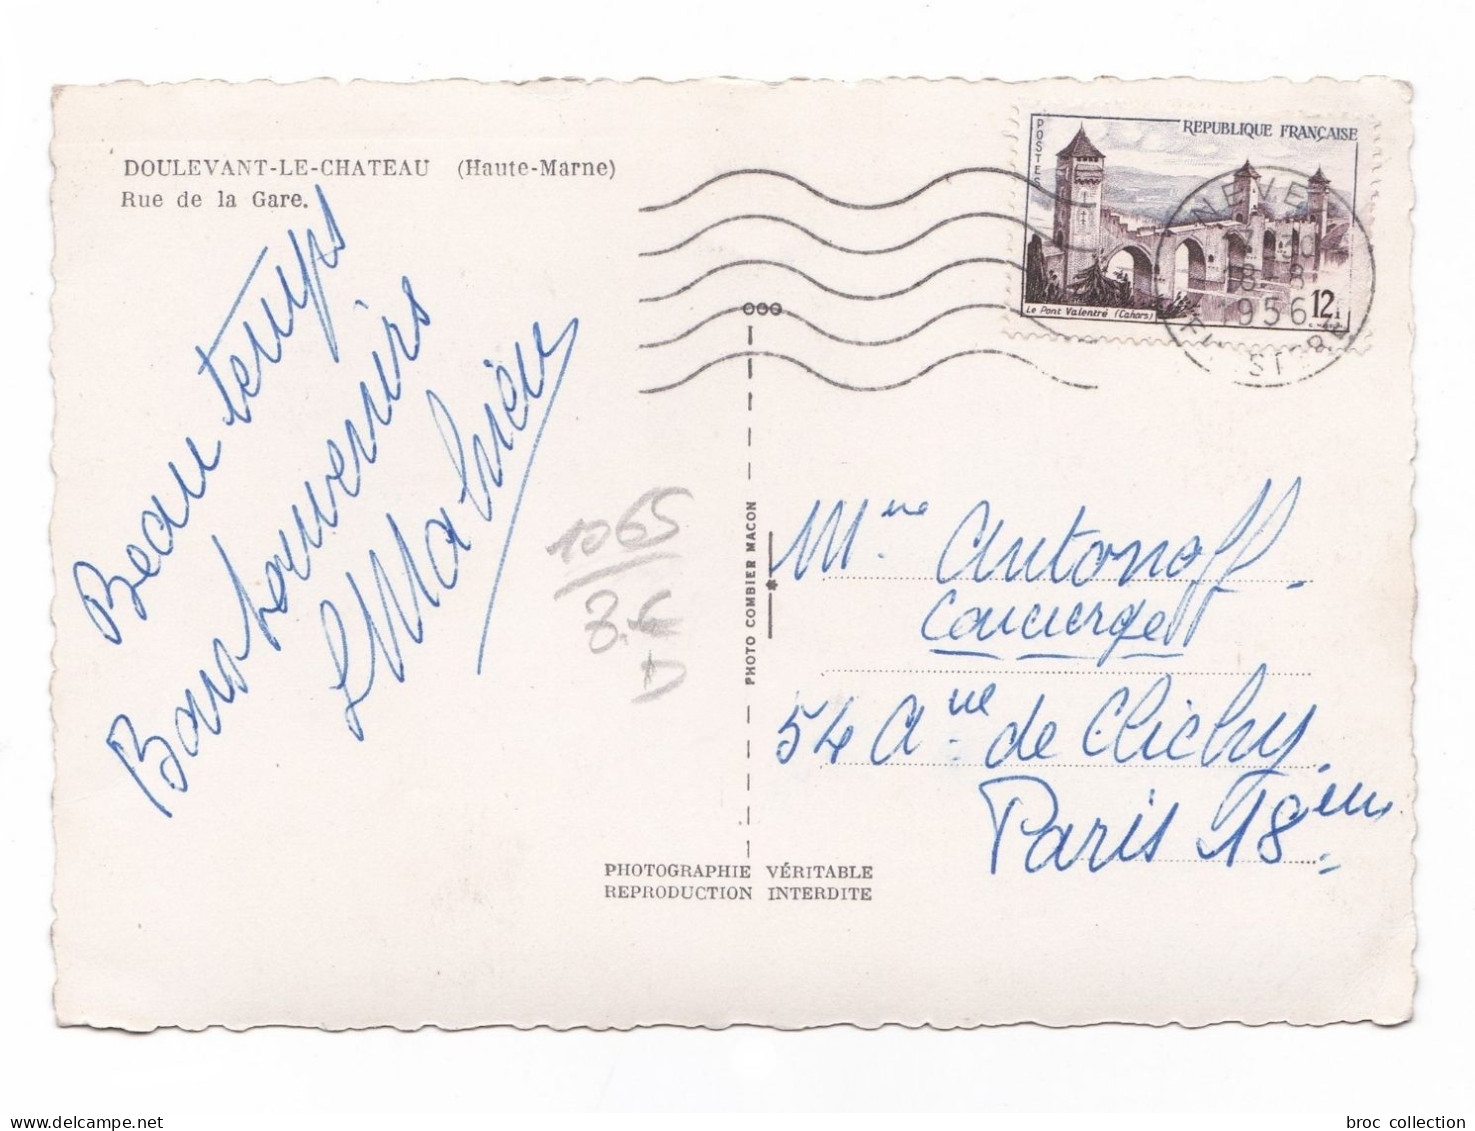 DOULEVANT-LE-CHATEAU (Haute-Marne)
Rue de la Gare.
Beau temps
Bons souvenirs
L Mathieu
1065
3.€
D
PHOTO COMBIER MACON
POSTES
REPUBLIQUE FRANÇAISE
Le Pont Valentré (Cahors)
12f
8-8
1956
Mme Antonoff
Concierge
54 Ave de Clichy
Paris 18em
PHOTOGRAPHIE VÉRITABLE
REPRODUCTION INTERDITE
broc collection